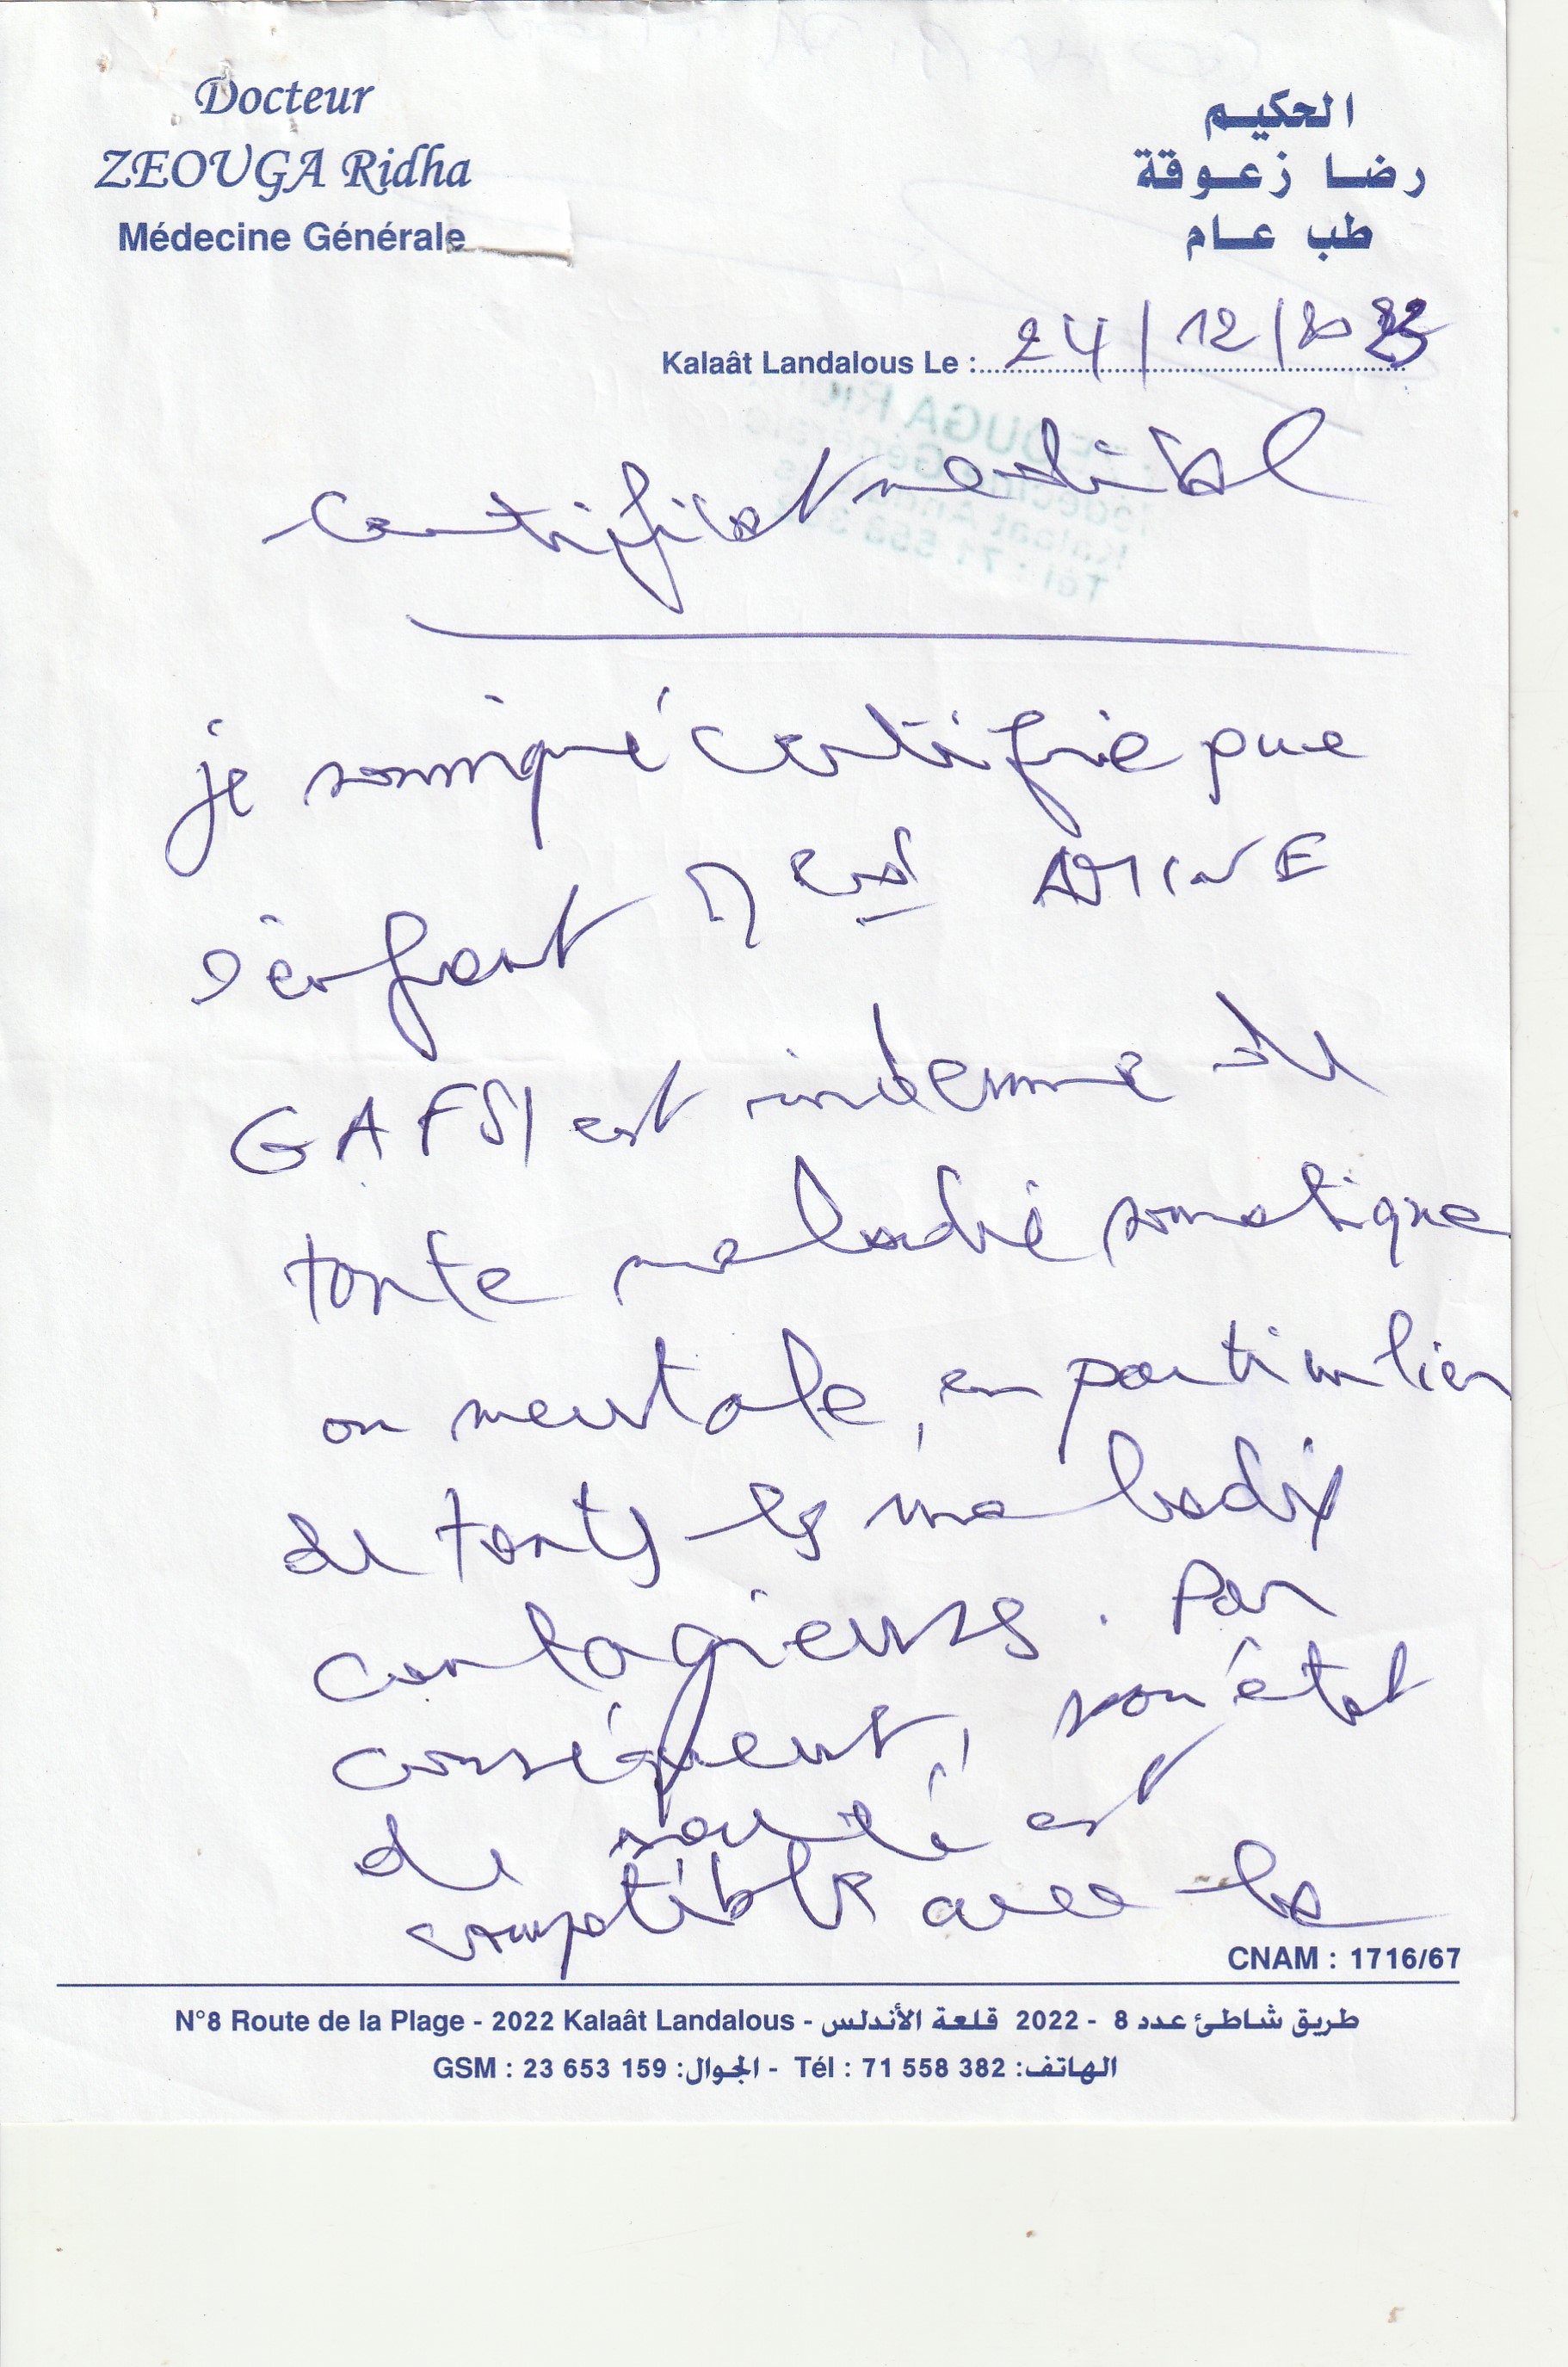 Docteur
ZEOUGA Ridha
Médecine Générale
الحكيم
رضا زعوقة
طب عام
Kalaât Landalous Le : 24/12/20
Certificat medical
je soussigné certifie que
l'enfant Med AMINE
GAFSI est indemne de
toute maladie somatique
ou mentale, en particulier
de touts les maladies
contagieuses. Par
conséquent, son état
de santé est
compatible avec la
CNAM : 1716/67
N°8 Route de la Plage - 2022 Kalaât Landalous - طريق شاطئ عدد 8 - 2022 قلعة الأندلس
GSM : 23 653 159 :الجوال - Tél : 71 558 382 :الهاتف